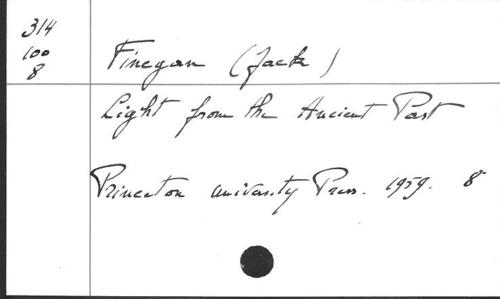 314
100
8
Finegan (Jack)
Light from the Ancient Past
Princeton University Press. 1959. 8°